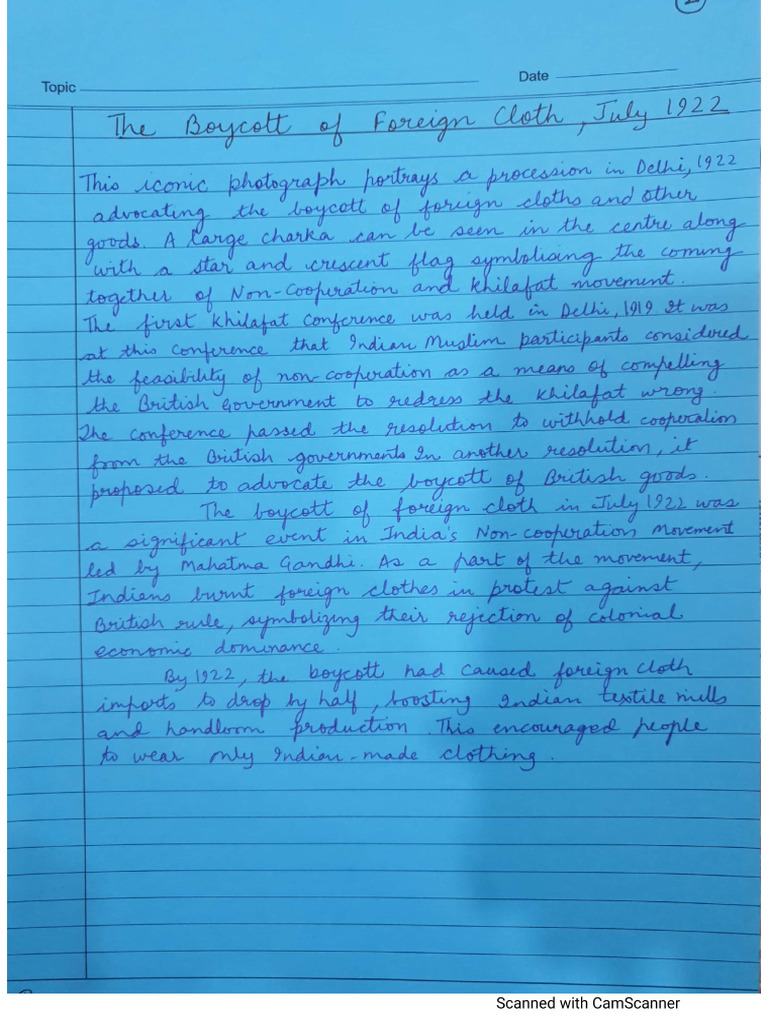 2
Topic
Date
The Boycott of Foreign Cloth, July 1922
This iconic photograph portrays a procession in Delhi, 1922
advocating the boycott of foreign cloths and other
goods. A large charka can be seen in the centre along
with a star and crescent flag symbolising the coming
together of Non-Cooperation and Khilafat movement.
The first Khilafat Conference was held in Delhi, 1919 It was
at this conference that Indian Muslim participants considered
the feasibility of non-cooperation as a means of compelling
the British Government to redress the Khilafat wrong.
The conference passed the resolution to withhold cooperation
from the British governments In another resolution, it
proposed to advocate the boycott of British goods.
The boycott of foreign cloth in July 1922 was
a significant event in India's Non-cooperation Movement
led by Mahatma Gandhi. As a part of the movement,
Indians burnt foreign clothes in protest against
British rule, symbolizing their rejection of colonial
economic dominance.
By 1922, the boycott had caused foreign cloth
imports to drop by half, boosting Indian textile mills
and handloom production. This encouraged people
to wear only Indian-made clothing.
Scanned with CamScanner